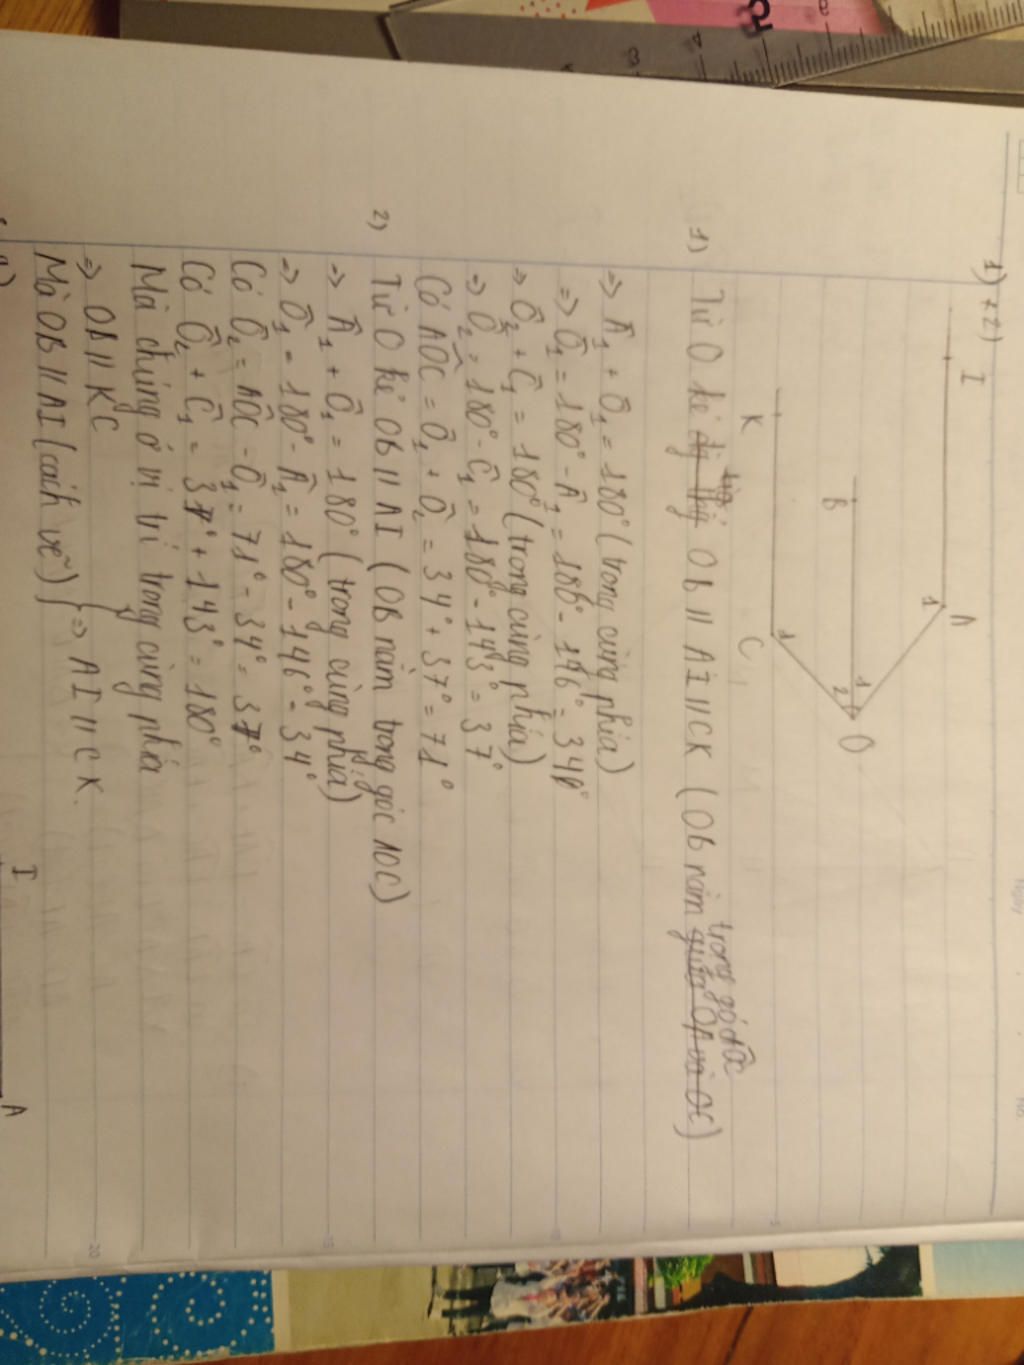 1) + 2)
I
A
1
B
1
2
O
K
C
1
1) Từ O kẻ tia OB // AI // CK (OB nằm trong góc AOC)
=> Â1 + Ô1 = 180° (trong cùng phía)
=> Ô1 = 180° - Â1 = 180° - 146° = 34°
=> Ô2 + Ĉ1 = 180° (trong cùng phía)
=> Ô2 = 180° - Ĉ1 = 180° - 143° = 37°
Có AOC = Ô1 + Ô2 = 34° + 37° = 71°
2) Từ O kẻ OB // AI (OB nằm trong góc AOC)
=> Â1 + Ô1 = 180° (trong cùng phía)
=> Ô1 = 180° - Â1 = 180° - 146° = 34°
Có Ô2 = AÔC - Ô1 = 71° - 34° = 37°
Có Ô2 + Ĉ1 = 37° + 143° = 180°
Mà chúng ở vị trí trong cùng phía
=> OB // KC
Mà OB // AI (cách vẽ) } => AI // CK.
I
A
5
10
15
20